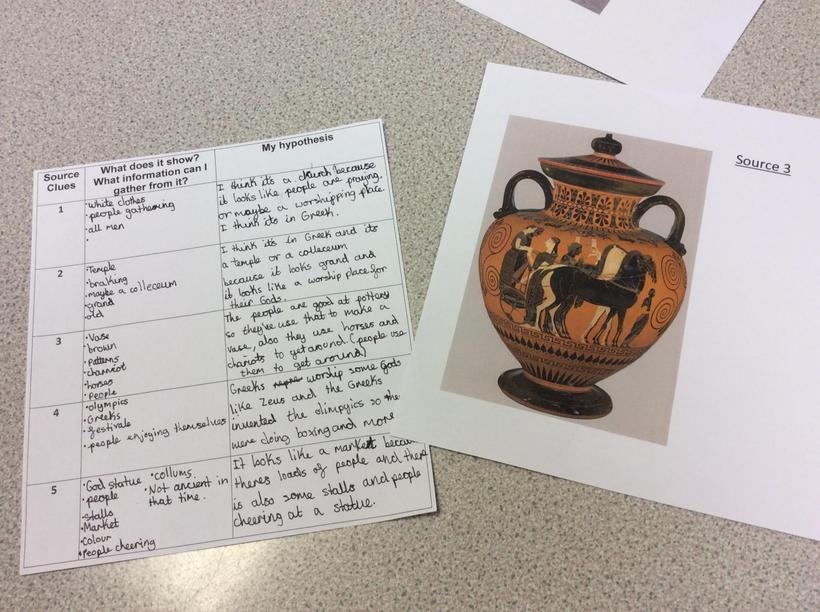 Source
Clues
What does it show?
What information can I
gather from it?
My hypothesis
1
•white clothes
•people gathering
•all men
•
I think it's a church because
it looks like people are praying.
or maybe a worshipping place.
I think it's in Greek.
2
•Temple
•braking
•maybe a colleceum
•grand
•old
I think it's in Greek and its
a temple or a colleceum
because it looks grand and
it looks like a worship place for
their Gods.
3
•Vase
•brown
•patterns
•charriot
•horses
•People
The people are good at pottery
so they've use that to make a
vase, also they use horses and
chariots to get around. (people use
them to get around)
4
•olympics
•Greeks
•festivals
•people enjoying themselves
Greeks worship some Gods
like Zeus and the Greeks
invented the olimpyics so the
were doing boxing and more
5
•God statue •collums.
•people •Not ancient in
that time.
•stalls
•Market
•Colour
•People cheering
It looks like a market becau
theres loads of people and there
is also some stalls and people
cheering at a statue.
Source 3